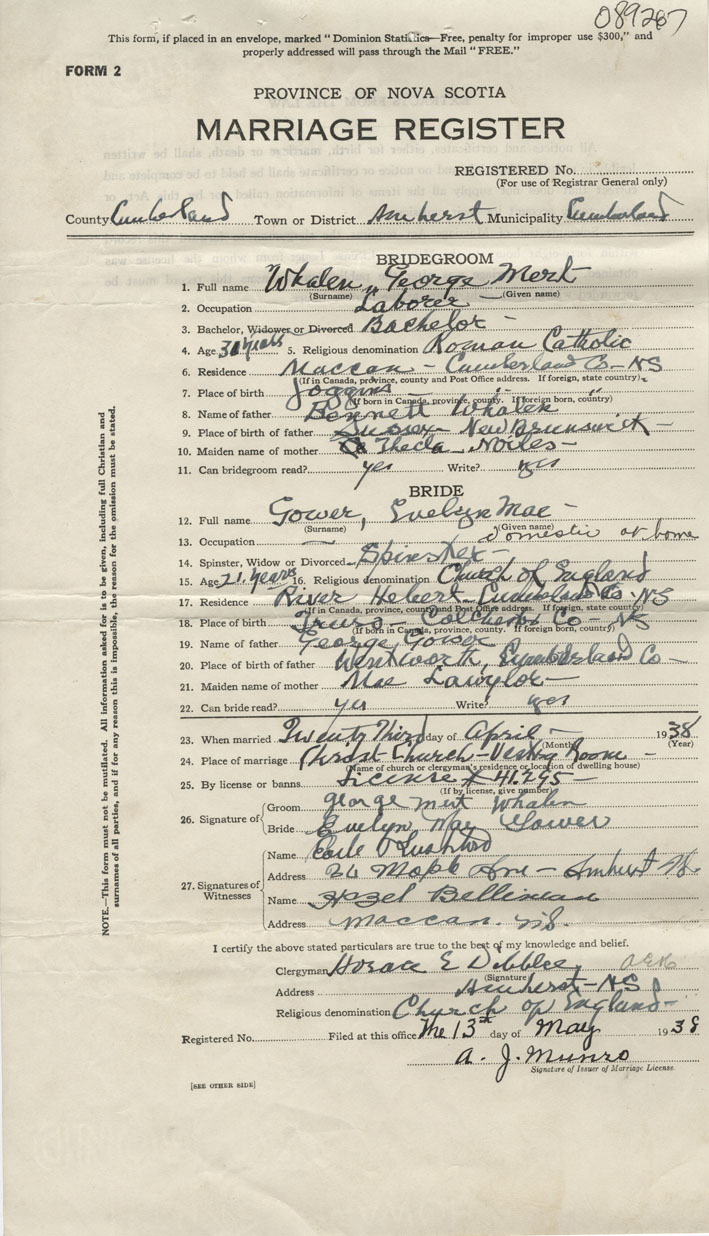 089267
This form, if placed in an envelope, marked "Dominion Statistics—Free, penalty for improper use $300," and
properly addressed will pass through the Mail "FREE."
FORM 2
PROVINCE OF NOVA SCOTIA
MARRIAGE REGISTER
REGISTERED No.
(For use of Registrar General only)
County Cumberland Town or District Amherst Municipality Cumberland
BRIDEGROOM
1. Full name Whalen, George Mert
(Surname) (Given name)
2. Occupation Laborer
3. Bachelor, Widower or Divorced Bachelor -
4. Age 31 years 5. Religious denomination Roman Catholic
6. Residence Maccan - Cumberland Co - NS
(If in Canada, province, county and Post Office address. If foreign, state country)
7. Place of birth Joggins " "
(If born in Canada, province, county. If foreign born, country)
8. Name of father Bennett Whalen
9. Place of birth of father Sussex - New Brunswick -
10. Maiden name of mother Theda Noiles -
11. Can bridegroom read? yes Write? yes
BRIDE
12. Full name Gower, Evelyn Mae -
(Surname) (Given name)
13. Occupation — Domestic at home
14. Spinster, Widow or Divorced Spinster -
15. Age 21 years 16. Religious denomination Church of England
17. Residence River Hebert - Cumberland Co NS
(If in Canada, province, county and Post Office address. If foreign, state country)
18. Place of birth Truro - Colchester Co - NS
(If born in Canada, province, county. If foreign born, country)
19. Name of father George Gower
20. Place of birth of father Wentworth, Cumberland Co -
21. Maiden name of mother Mae Lawlor -
22. Can bride read? yes Write? yes
23. When married Twenty Third day of April - 1938
(Month) (Year)
24. Place of marriage Christ Church - Vestry Room -
(Name of church or clergyman's residence or location of dwelling house)
25. By license or banns License # 41.295 -
(If by license, give number)
26. Signature of Groom George Mert Whalen
Bride Evelyn May Gower
27. Signatures of Witnesses
Name Earle
Address 24 Maple Ave - Amherst NS
Name Hazel
Address Maccan. N.S.
I certify the above stated particulars are true to the best of my knowledge and belief.
Clergyman Horace E Dibblee
(Signature)
Address Amherst - NS
Religious denomination Church of England -
Registered No. Filed at this office the 13th day of May 1938
A. J. Munro
Signature of Issuer of Marriage License.
[SEE OTHER SIDE]
NOTE.—This form must not be mutilated. All information asked for is to be given, including full Christian and
surnames of all parties, and if for any reason this is impossible, the reason for the omission must be stated.